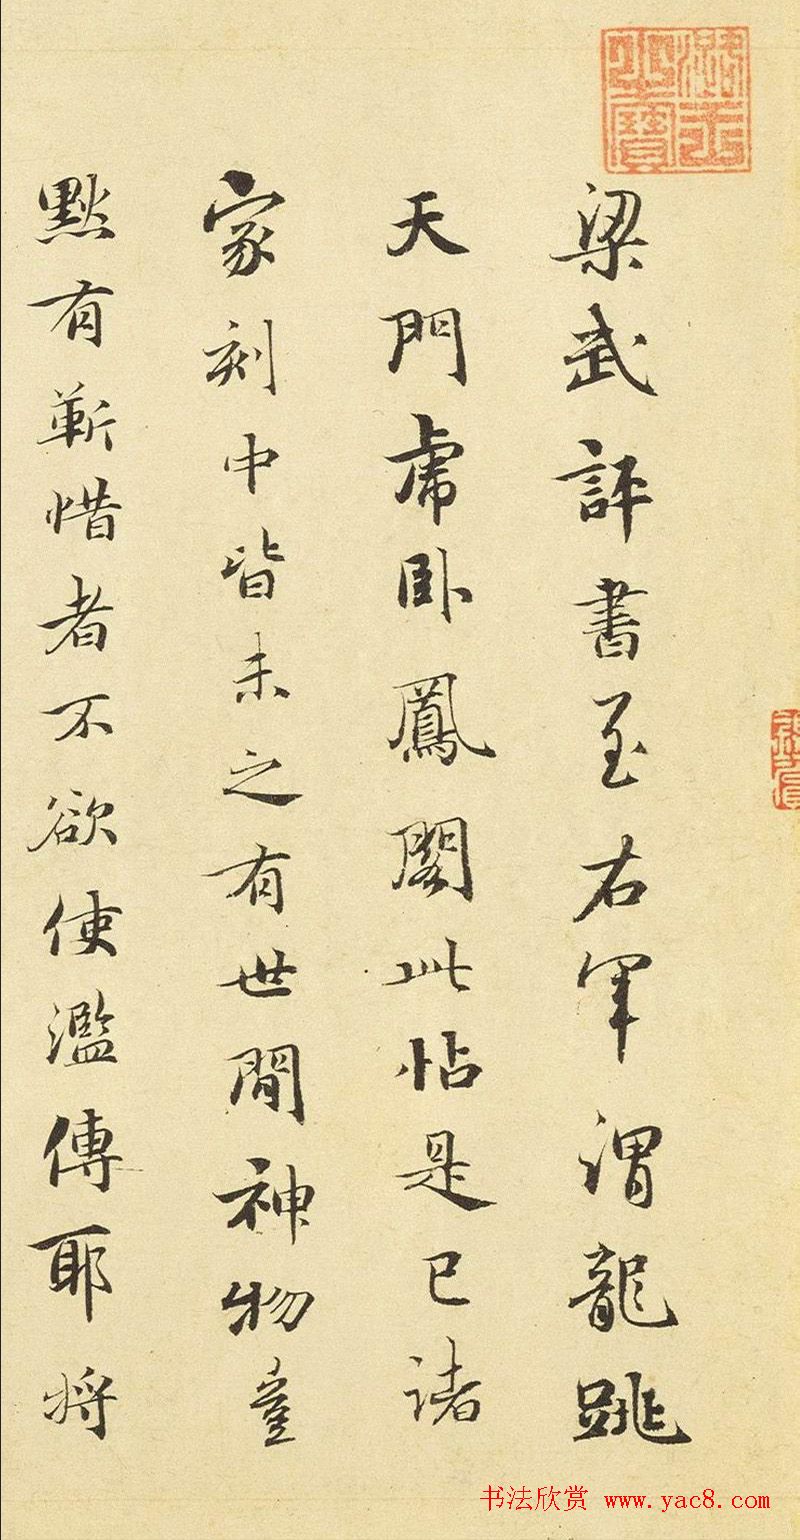 梁武評書至右軍謂龍跳
天門虎卧鳳閣此帖是已諸
家刻中皆未之有世間神物豈
黙有靳惜者不欲使濫傳耶將
书法欣赏 www.yac8.com